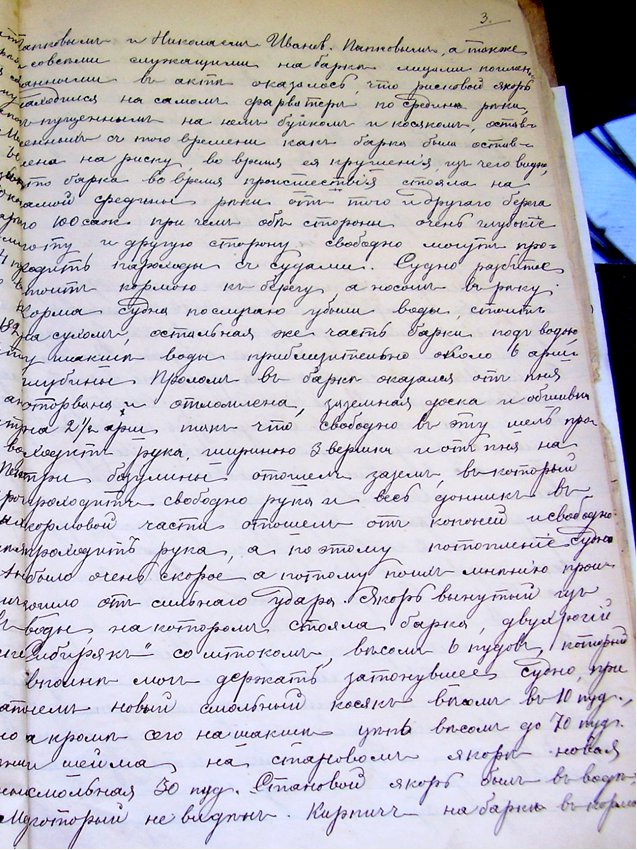 3.
апковымъ и Николаемъ Иванов. Папковымъ, а также
совсеми служащими на барке лицами поимен,
анными въ акте оказалось, что рисковой якорь
находился на самомъ фарватере по средине реки,
съ пущеннымъ на немъ буйкомъ и косякомъ, остав-
леннымъ съ того времени какъ барка была остав-
лена на риску, во время ея крушенія изъ чего видно,
что барка во время происшествія стояла на
самой средине реки отъ того и другаго берега
100 саж при чемъ обе стороны очень глубоке
ту и другую сторону свободно могутъ про-
ходить пароходы съ судами. Судно разбитое
стоитъ кормою къ берегу, а носомъ въ реку.
Корма судна послучаю убыли воды, стоитъ
на сухомъ, остальная же часть барки подъ водою
воды приблизительно около 6 арш.
глубины Проломъ въ барке оказался отъ пня
оторвана и отломлена, заземная доска и обшивка
на 2½ арш. такъ что свободно въ эту щель про-
ходитъ рука, шириною 3 вершка и отъ пня на
отошелъ заземъ, въ который
проходитъ свободно рука и весь донникъ въ
кормовой части отошелъ отъ коконей и свободно
проходитъ рука, а поэтому потопленіе судна
было очень скорое а потому поихъ мненію прои-
зошло отъ сильнаго удара. Якорь вынутый изъ
воды, на которомъ стояла барка, двухрогій
„Сибирякъ" со штокомъ, весомъ 6 пудовъ, который
вполне могъ держать затонувшее судно, при
томъ новый смольный косякъ весомъ въ 10 пуд.,
а кроме сего на шакше цепь весомъ до 70 пуд.
шейма на становомъ якоре новая
смольная 30 пуд. Становой якорь былъ въ воде
который не виденъ. Кирпичъ на барке въ корме